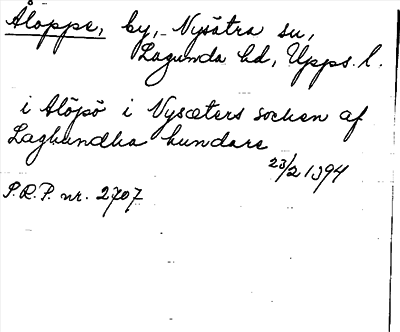 Åloppe, by, Nysätra sn,
Lagunda hd, Upps. l.
i Alöpö i Nysæters socken af
Laghundha hundare
23/2 1394
S.R.P. nr. 2707